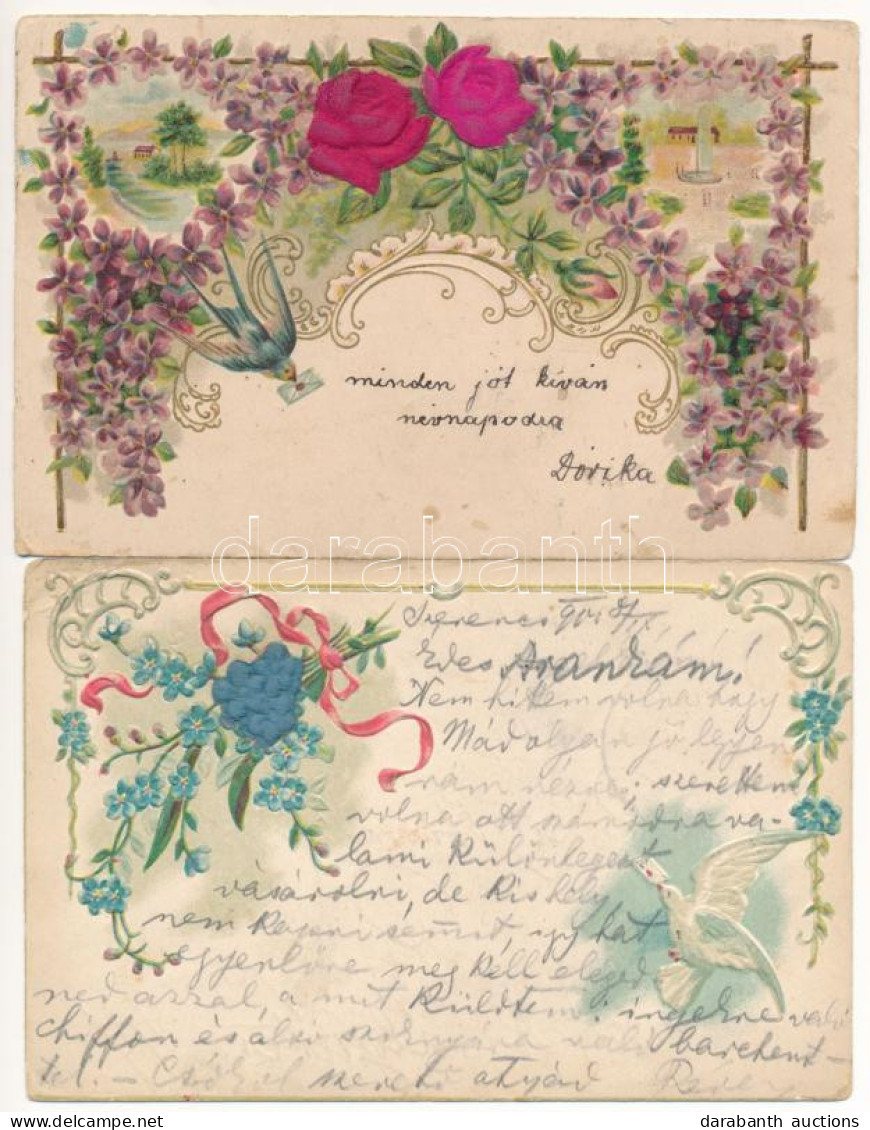 minden jót kíván
névnapodra
Dórika
darabanth
Szerencs
Édes Arankám!
Nem hittem volna hogy
Mád olyan jó legyen
rám nézve, szerettem
volna ott számodra va-
lami különlegest
vásárolni, de kis hely
nem kapni semmit, így hát
egyenlőre meg kell eléged-
ned azzal, a mit küldtem: ingekre való
chiffon és alsó szoknyára való barchent-
tel. – Csókol szerető atyád
darabanth auctions